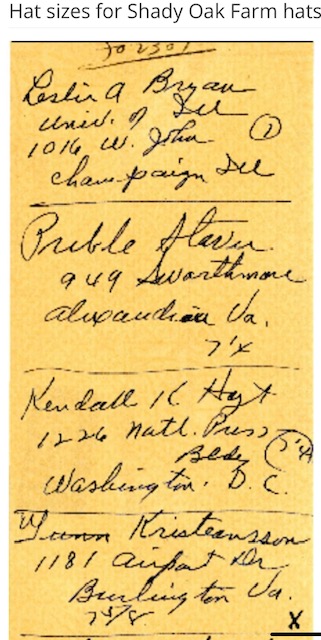 Hat sizes for Shady Oak Farm hats
Leslie A Bryan
Univ. of Ill
1016 W. John
Champaign Ill
Preble Staver
949 Swarthmore
Alexandria Va.
Kendall K Hoyt
1226 Natl. Press
Bldg
Washington. D. C.
Gunn Kristeansson
1181 Airport Dr
Burlington Va.
7 5/8
X